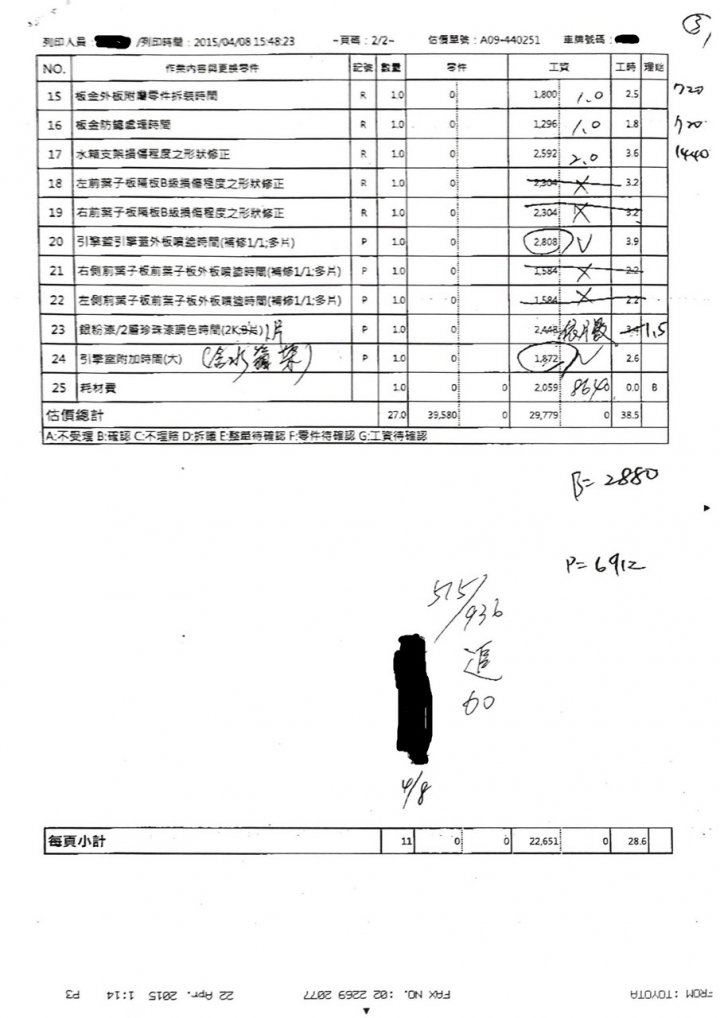 3
列印人員: /列印時間:2015/04/08 15:48:23 -頁碼:2/2- 估價單號:A09-440251 車牌號碼:
NO. 作業內容與更換零件 記號 數量 零件 工資 工時 理賠
15 板金外板附屬零件拆裝時間 R 1.0 0 1,800 1.0 2.5 720
16 板金防鏽處理時間 R 1.0 0 1,296 1.0 1.8 720
17 水箱支架損傷程度之形狀修正 R 1.0 0 2,592 2.0 3.6 1440
18 左前葉子板隔板B級損傷程度之形狀修正 R 1.0 0 2,304 X 3.2
19 右前葉子板隔板B級損傷程度之形狀修正 R 1.0 0 2,304 X 3.2
20 引擎蓋引擎蓋外板噴塗時間(補修1/1;多片) P 1.0 0 2,808 V 3.9
21 右側前葉子板前葉子板外板噴塗時間(補修1/1;多片) P 1.0 0 1,584 X 2.2
22 左側前葉子板前葉子板外板噴塗時間(補修1/1;多片) P 1.0 0 1,584 X 2.2
23 銀粉漆/2層珍珠漆調色時間(2K;3片) 1片 P 1.0 0 2,448 3.4 1.5
24 引擎室附加時間(大) (含水箱架) P 1.0 0 1,872 V 2.6
25 耗材費 1.0 0 0 2,059 8640 0.0 B
估價總計 27.0 39,580 0 29,779 0 38.5
A:不受理 B:確認 C:不理賠 D:拆議 E:整單待確認 F:零件待確認 G:工資待確認
B=2880
P=6912
515/936
追
60
4/8
每頁小計 11 0 0 22,651 0 28.6
FROM :TOYOTA FAX NO. :02 2269 2077 22 Apr. 2015 1:14 P3